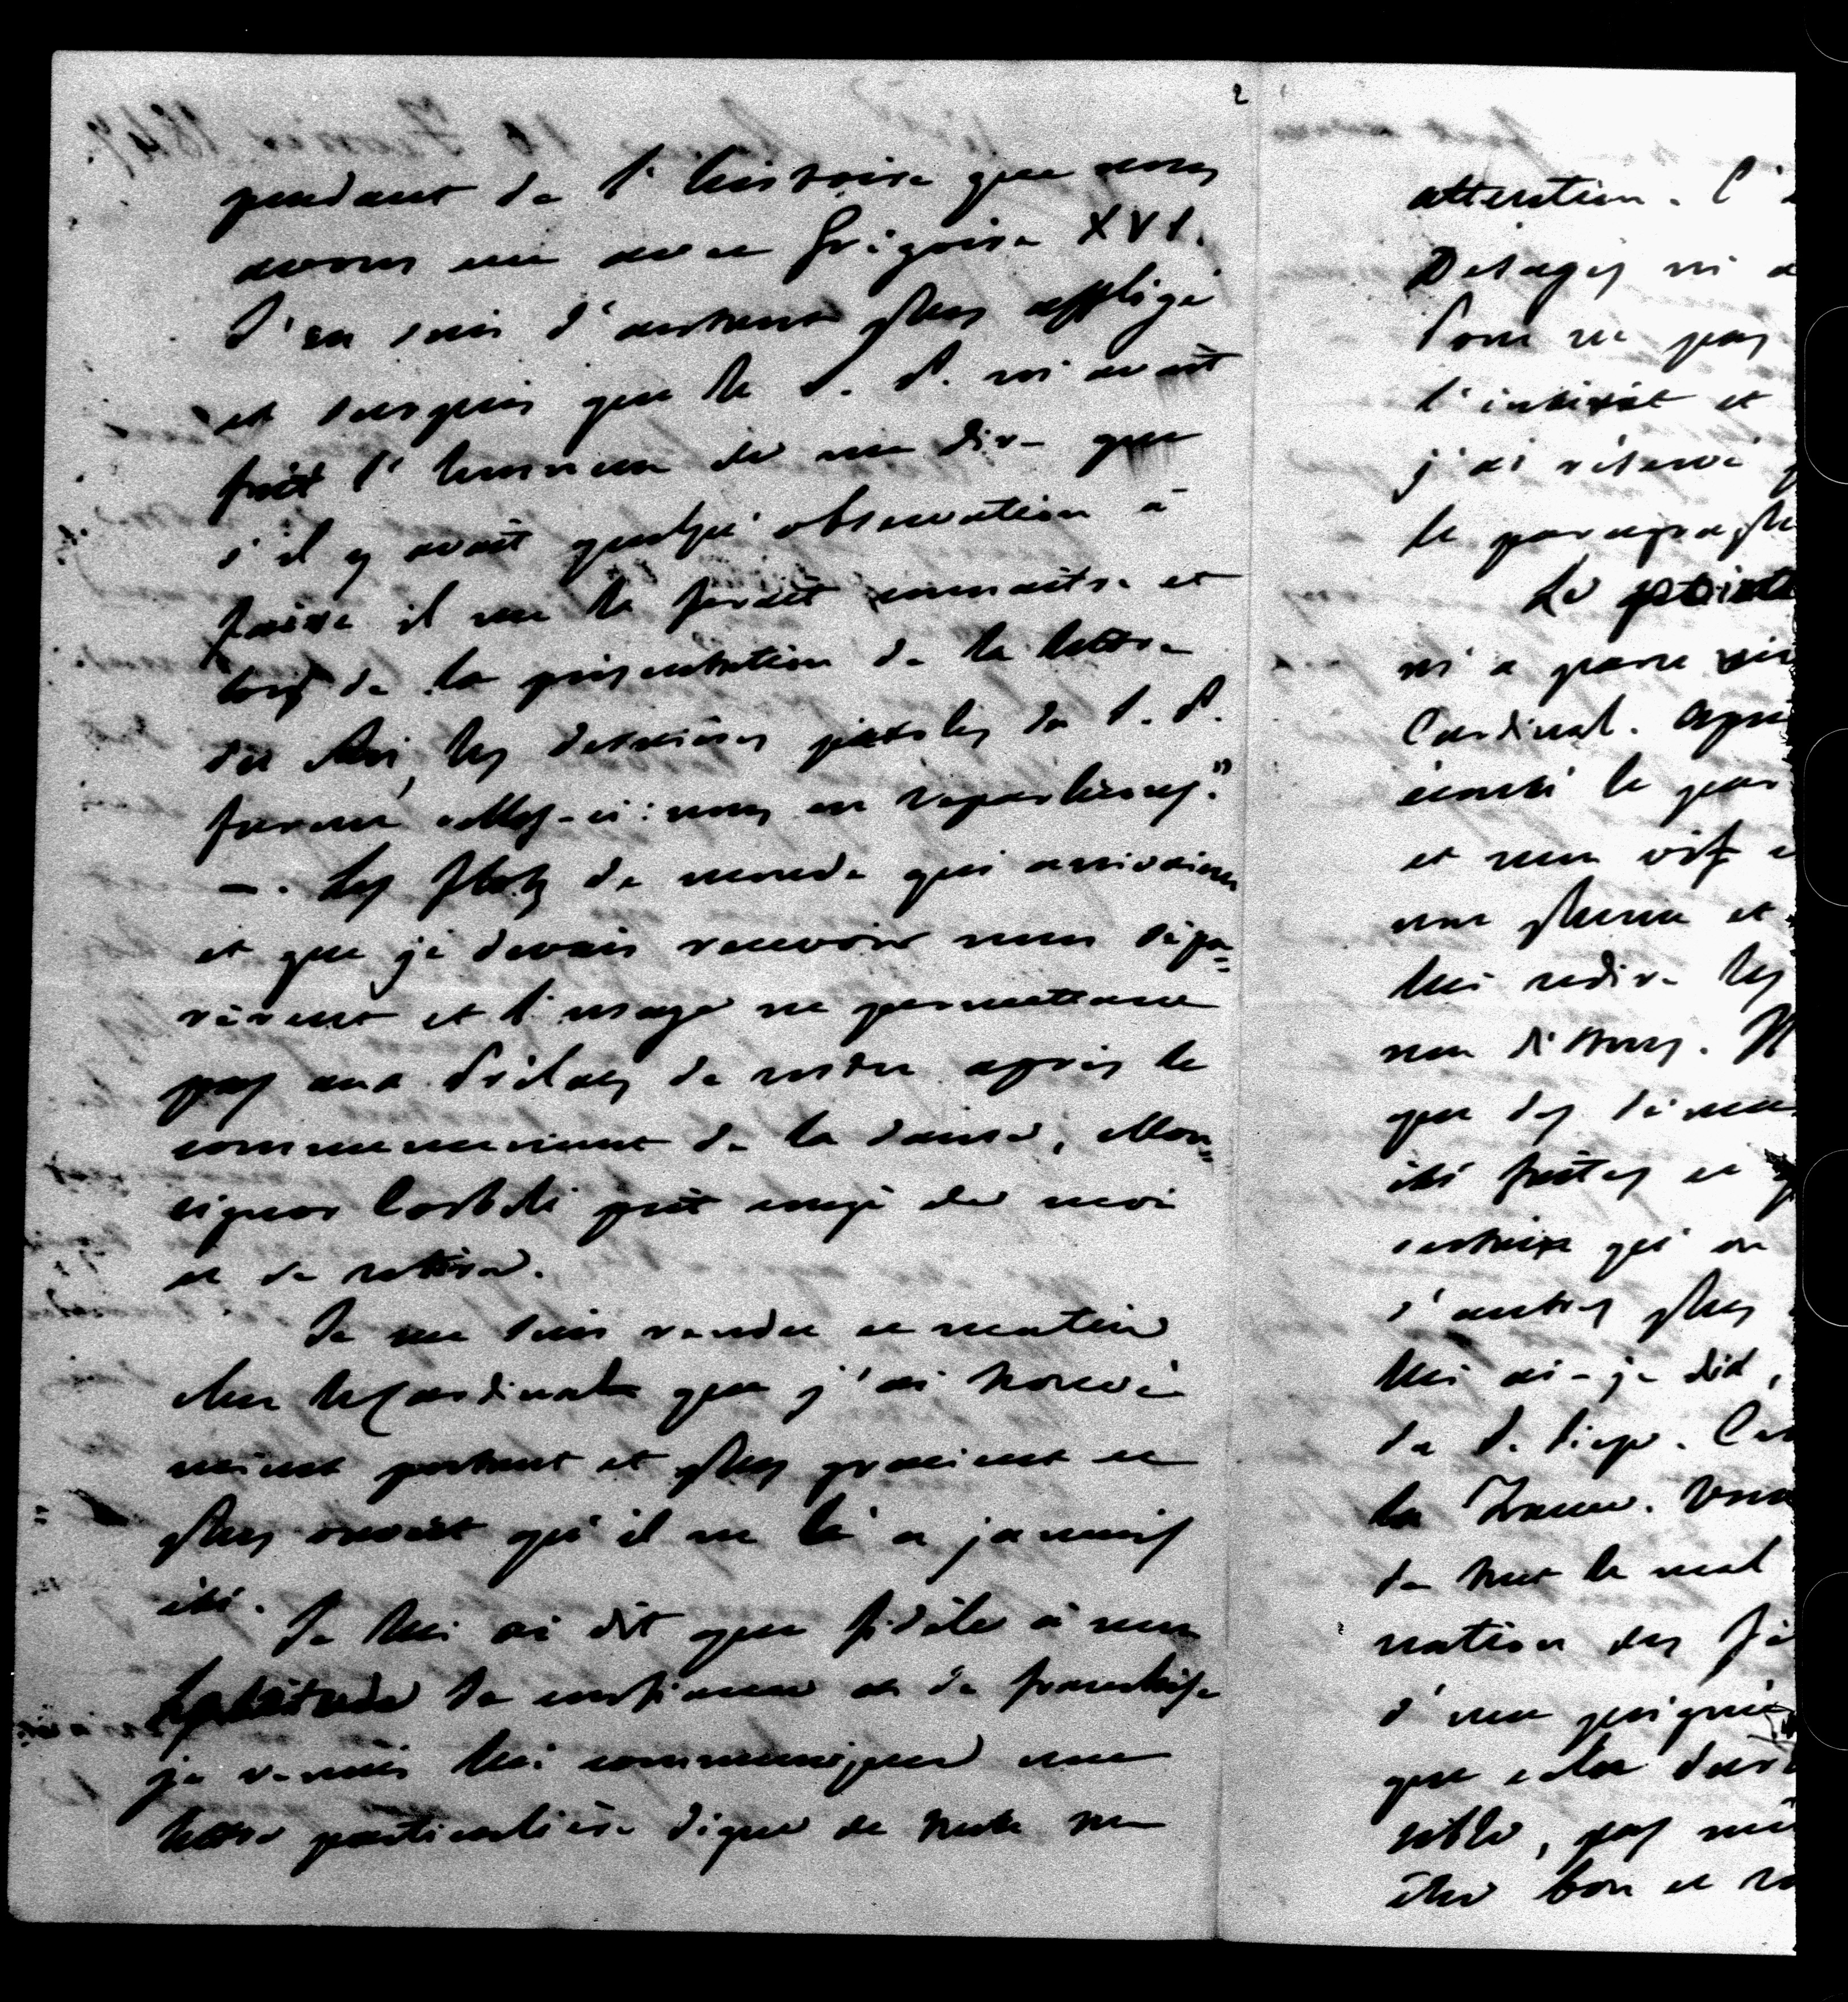 2
pendant de l'histoire que nous
avons eue avec Grégoire XVI.
J'en suis d'autant plus affligé
et surpris que le S. P. m'avait
fait l'honneur de me dire que
s'il y avait quelqu'observation à
faire il me le ferait connaître et
lors de la présentation de la lettre
du Roi, les dernières paroles du S. P.
furent celles-ci: nous en reparlerons."
—. Les flots de monde qui arrivaient
et que je devais recevoir nous sépa=
rèrent et l'usage ne permettant
pas aux Prélats de rester après le
commencement de la danse, Mon=
signor Corboli prit congé de moi
et se retira.
Je me suis rendu ce matin
chez le Cardinal que j'ai trouvé
mieux portant et plus gracieux et
plus ouvert qu'il ne l'a jamais
été.
Je lui ai dit que fidèle à mon
habitude de confiance et de franchise
je venais lui communiquer une
lettre particulière digne de toute son
attention. C'
Desages m'a
Pour ne pas
l'intérêt et
j'ai réservé
le paragraphe
Le
m'a paru
Cardinal. Après
écouté le
et mon vif
une plume et
lui redire les
nos dittons.
que des
été faites et
certaine qu'on
d'autres plus
lui ai-je dit,
du S. Siège.
la France. Vous
de tout le mal
nation des
d'une poignée
que cela
sible, pas
être bon et